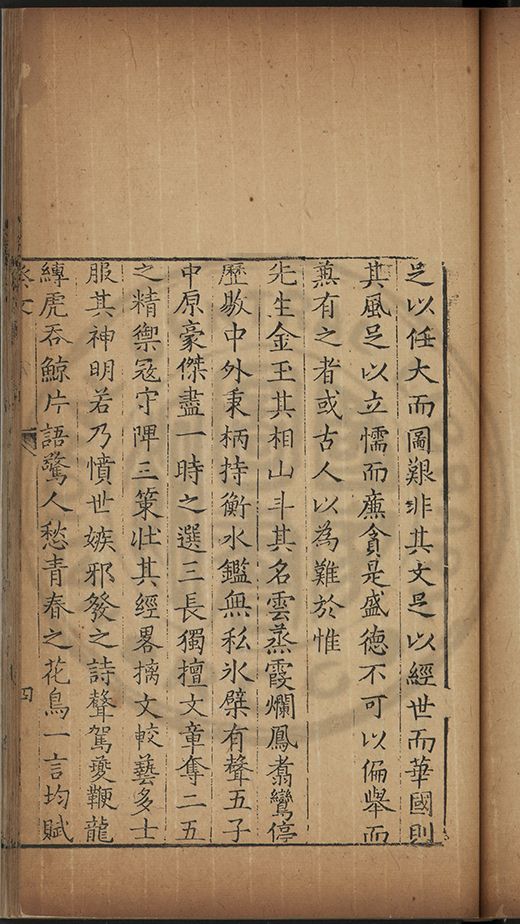 足以任大而圖艱非其文足以經世而華國則
其風足以立懦而㢘貪是盛德不可以偏舉而
蒹有之者或古人以為難於惟
先生金玉其相山斗其名雲蒸霞爛鳳翥鸞停
歷敭中外秉柄持衡水鑑無私氷檗有聲五子
中原豪傑盡一時之選三長獨擅文章奪二五
之精禦寇守陴三策壯其經畧摛文較藝多士
服其神明若乃憤世嫉邪發之詩聲駕夔鞭龍
縛虎吞鯨片語驚人愁青春之花鳥一言均賦
祭文
四